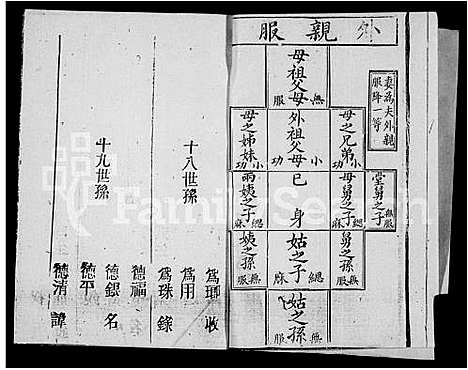 外親服
妻為夫外親
服降一等
堂舅之子 無服
母之兄弟 小功
母舅之子 緦麻
舅之孫 無服
母祖父母 無服
外祖父母 小功
己身
姑之子 緦麻
姑之孫 無服
母之姊妹 小功
兩姨之子 緦麻
姨之孫 無服
十八世孫
為瑯 收
為用
為珠 錄
十九世孫
德福
德銀 名
德平
德清 諱
FamilySearch